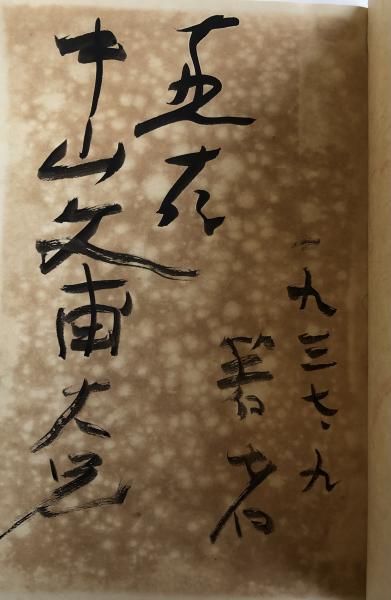 一九三七・九
著者
恵存
中山文甫大兄